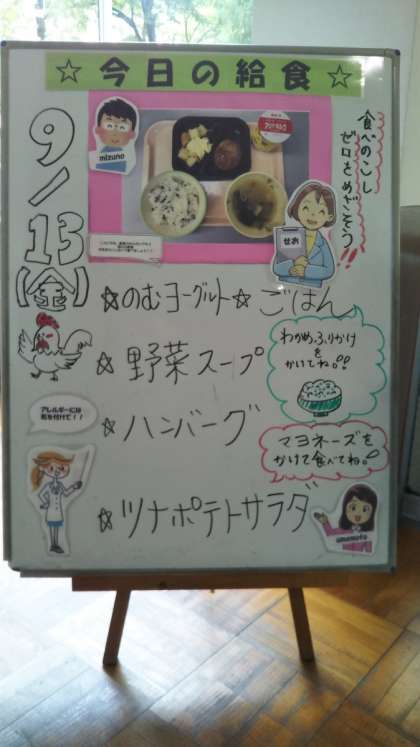 ☆今日の給食☆
9/13(金)
mizuno
食べのこし
ゼロをめざそう!!
せお
☆のむヨーグルト☆ごはん
☆野菜スープ
わかめふりかけ
を
かけてね!!
アレルギーには
気を付けて!!
☆ハンバーグ
マヨネーズを
かけて食べてね!
☆ツナポテトサラダ
umemoto